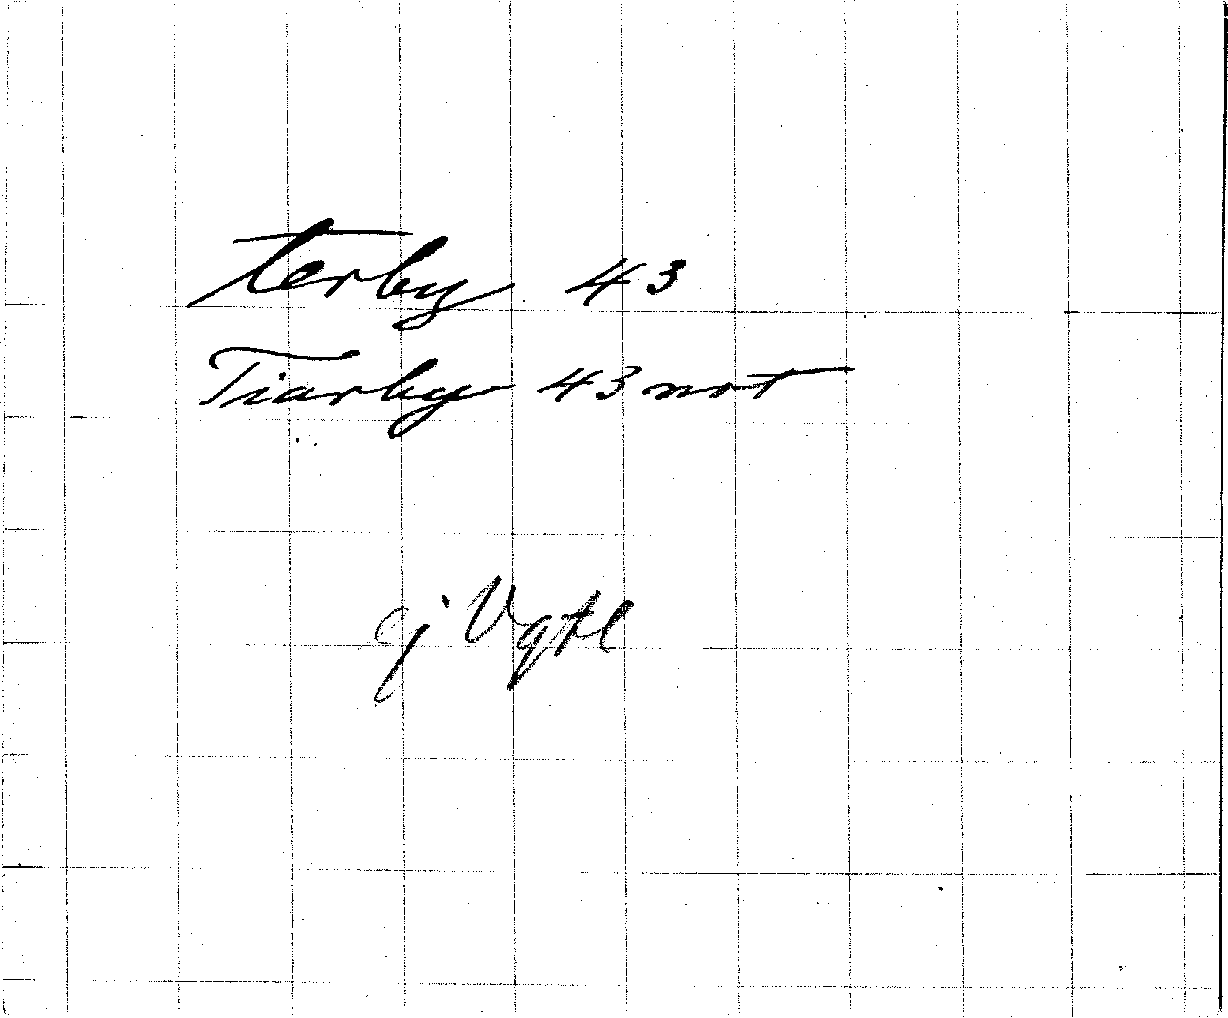 terby 43
Tiarby 43 not
ej Vgtl